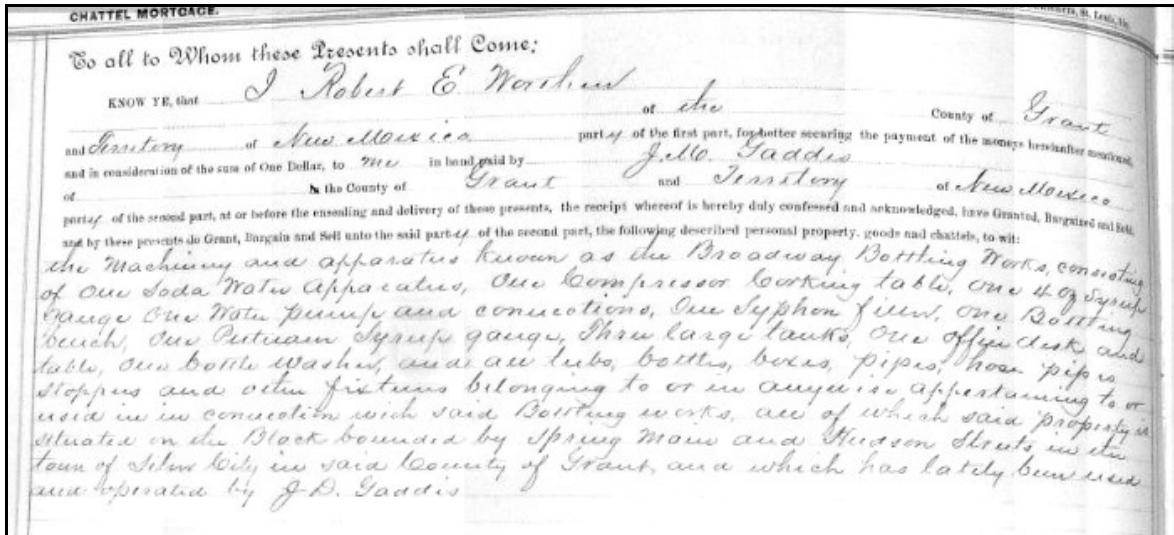 CHATTEL MORTGAGE.
St. Louis, Mo.
To all to Whom these Presents shall Come:
KNOW YE, that I Robert E. of the County of Grant
and Territory of New Mexico party of the first part, for better securing the payment of the moneys hereinafter mentioned,
and in consideration of the sum of One Dollar, to me in hand paid by J. M. Gaddis
of in the County of Grant and Territory of New Mexico
party of the second part, at or before the ensealing and delivery of these presents, the receipt whereof is hereby duly confessed and acknowledged, have Granted, Bargained and Sold,
and by these presents do Grant, Bargain and Sell unto the said party of the second part, the following described personal property, goods and chattels, to wit:
the Machinery and apparatus known as the Broadway Bottling Works, consisting
of One Soda Water Apparatus, One Compressor Corking table, one 4 oz Syrup
gauge One Water pump and connections, One Syphon filler, one Bottling
bench, One Putnam Syrup gauge, Three large tanks, One office desk and
table, One bottle Washer, and all tubs, bottles, boxes, pipes, hose pipes
stoppers and other fixtures belonging to or in anywise appertaining to or
used in in connection with said Bottling works, all of which said property is
situated on the Block bounded by Spring Main and Hudson Streets, in the
town of Silver City in said County of Grant, and which has lately been used
and operated by J. D. Gaddis